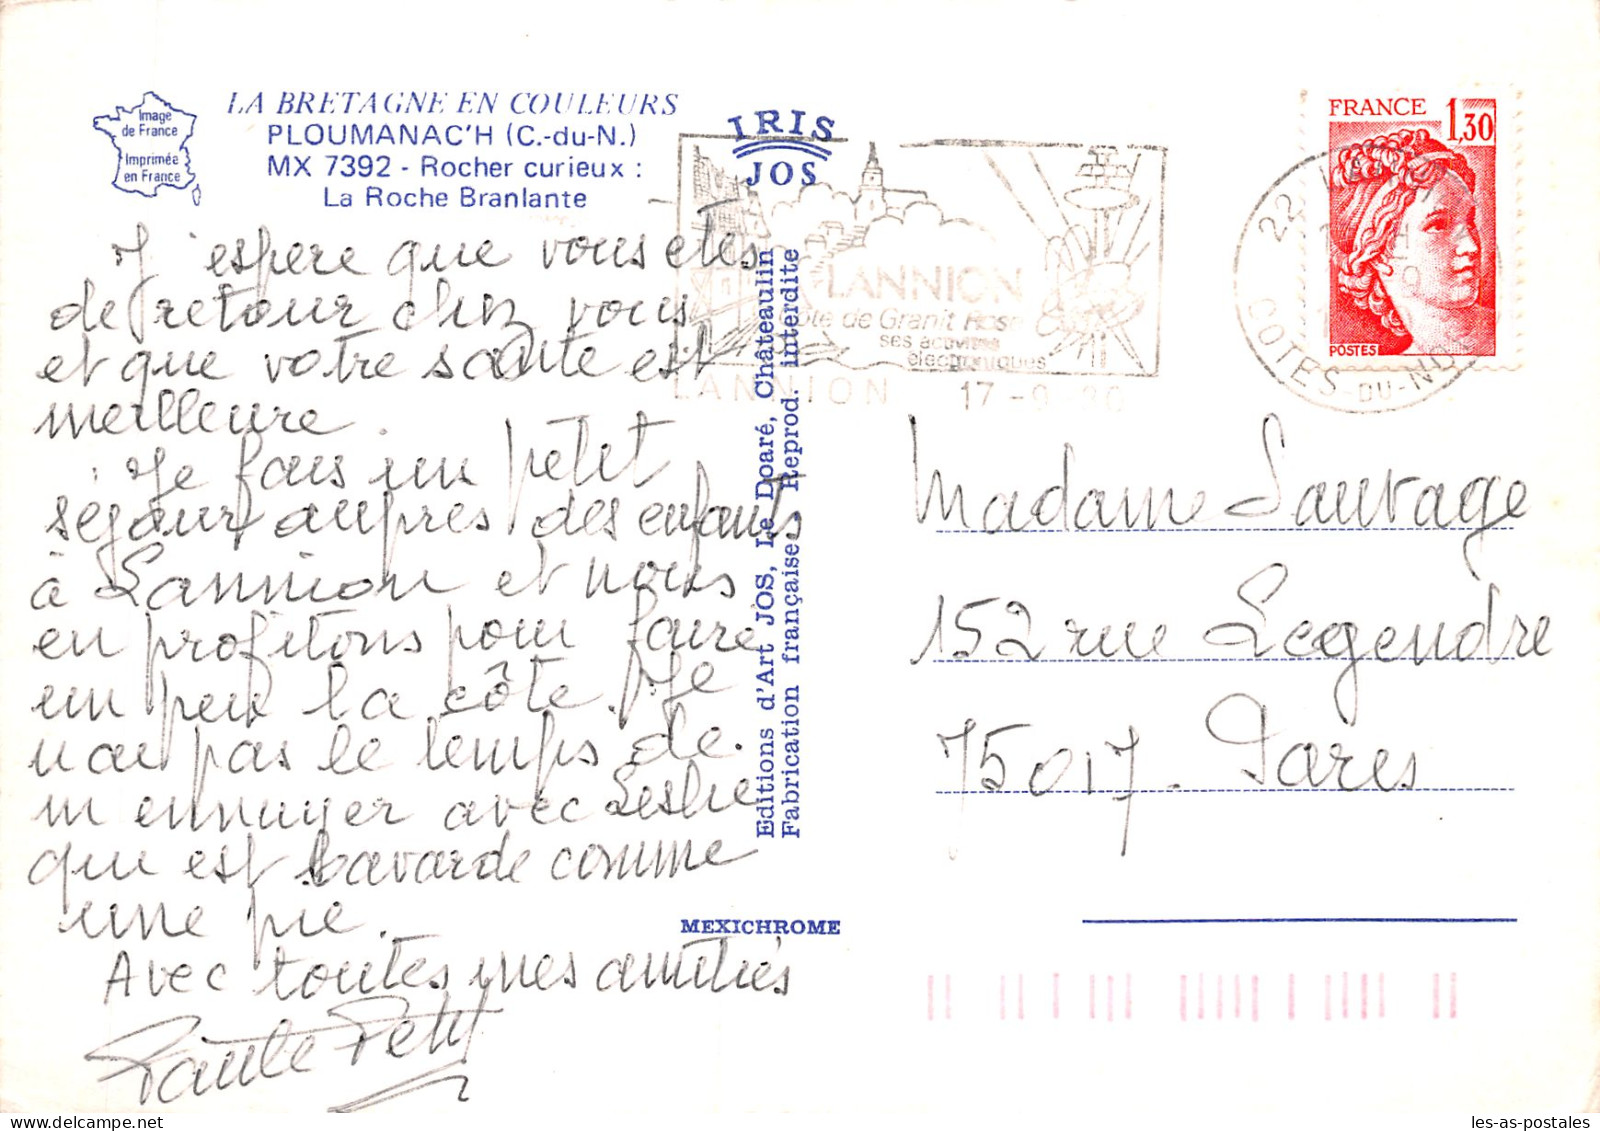 Image
de France
Imprimée
en France
LA BRETAGNE EN COULEURS
PLOUMANAC'H (C.-du-N.)
MX 7392 - Rocher curieux :
La Roche Branlante
IRIS
JOS
FRANCE 1,30
POSTES
LANNION
Côte de Granit Rose
ses activités
électroniques
LANNION 17-9-80
22
COTES-DU-ND
J'espère que vous etes
de retour chez vous
et que votre santé est
meilleure.
Je fais un petit
séjour auprès des enfants
à Lannion et nous
en profitons pour faire
un peu la côte. Je
n'ai pas le temps de
m'ennuyer avec Leslie
qui est bavarde comme
une pie.
Avec toutes mes amitiés
Paule Petit
Editions d'Art JOS, Le Doaré, Châteaulin
Fabrication française. Reprod. interdite
Madame Sauvage
152 rue Legendre
75017. Paris
MEXICHROME
les-as-postales